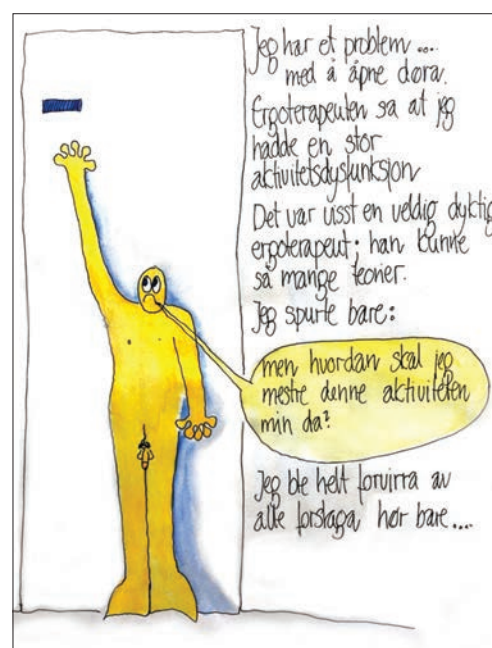 Jeg har et problem ....
med å åpne døra.
Ergoterapeuten sa at jeg
hadde en stor
aktivitetsdysfunksjon
Det var visst en veldig dyktig
ergoterapeut; han kunne
så mange teorier.
Jeg spurte bare:
men hvordan skal jeg
mestre denne aktiviteten
min da?
Jeg ble helt forvirra av
alle forslaga, hør bare....